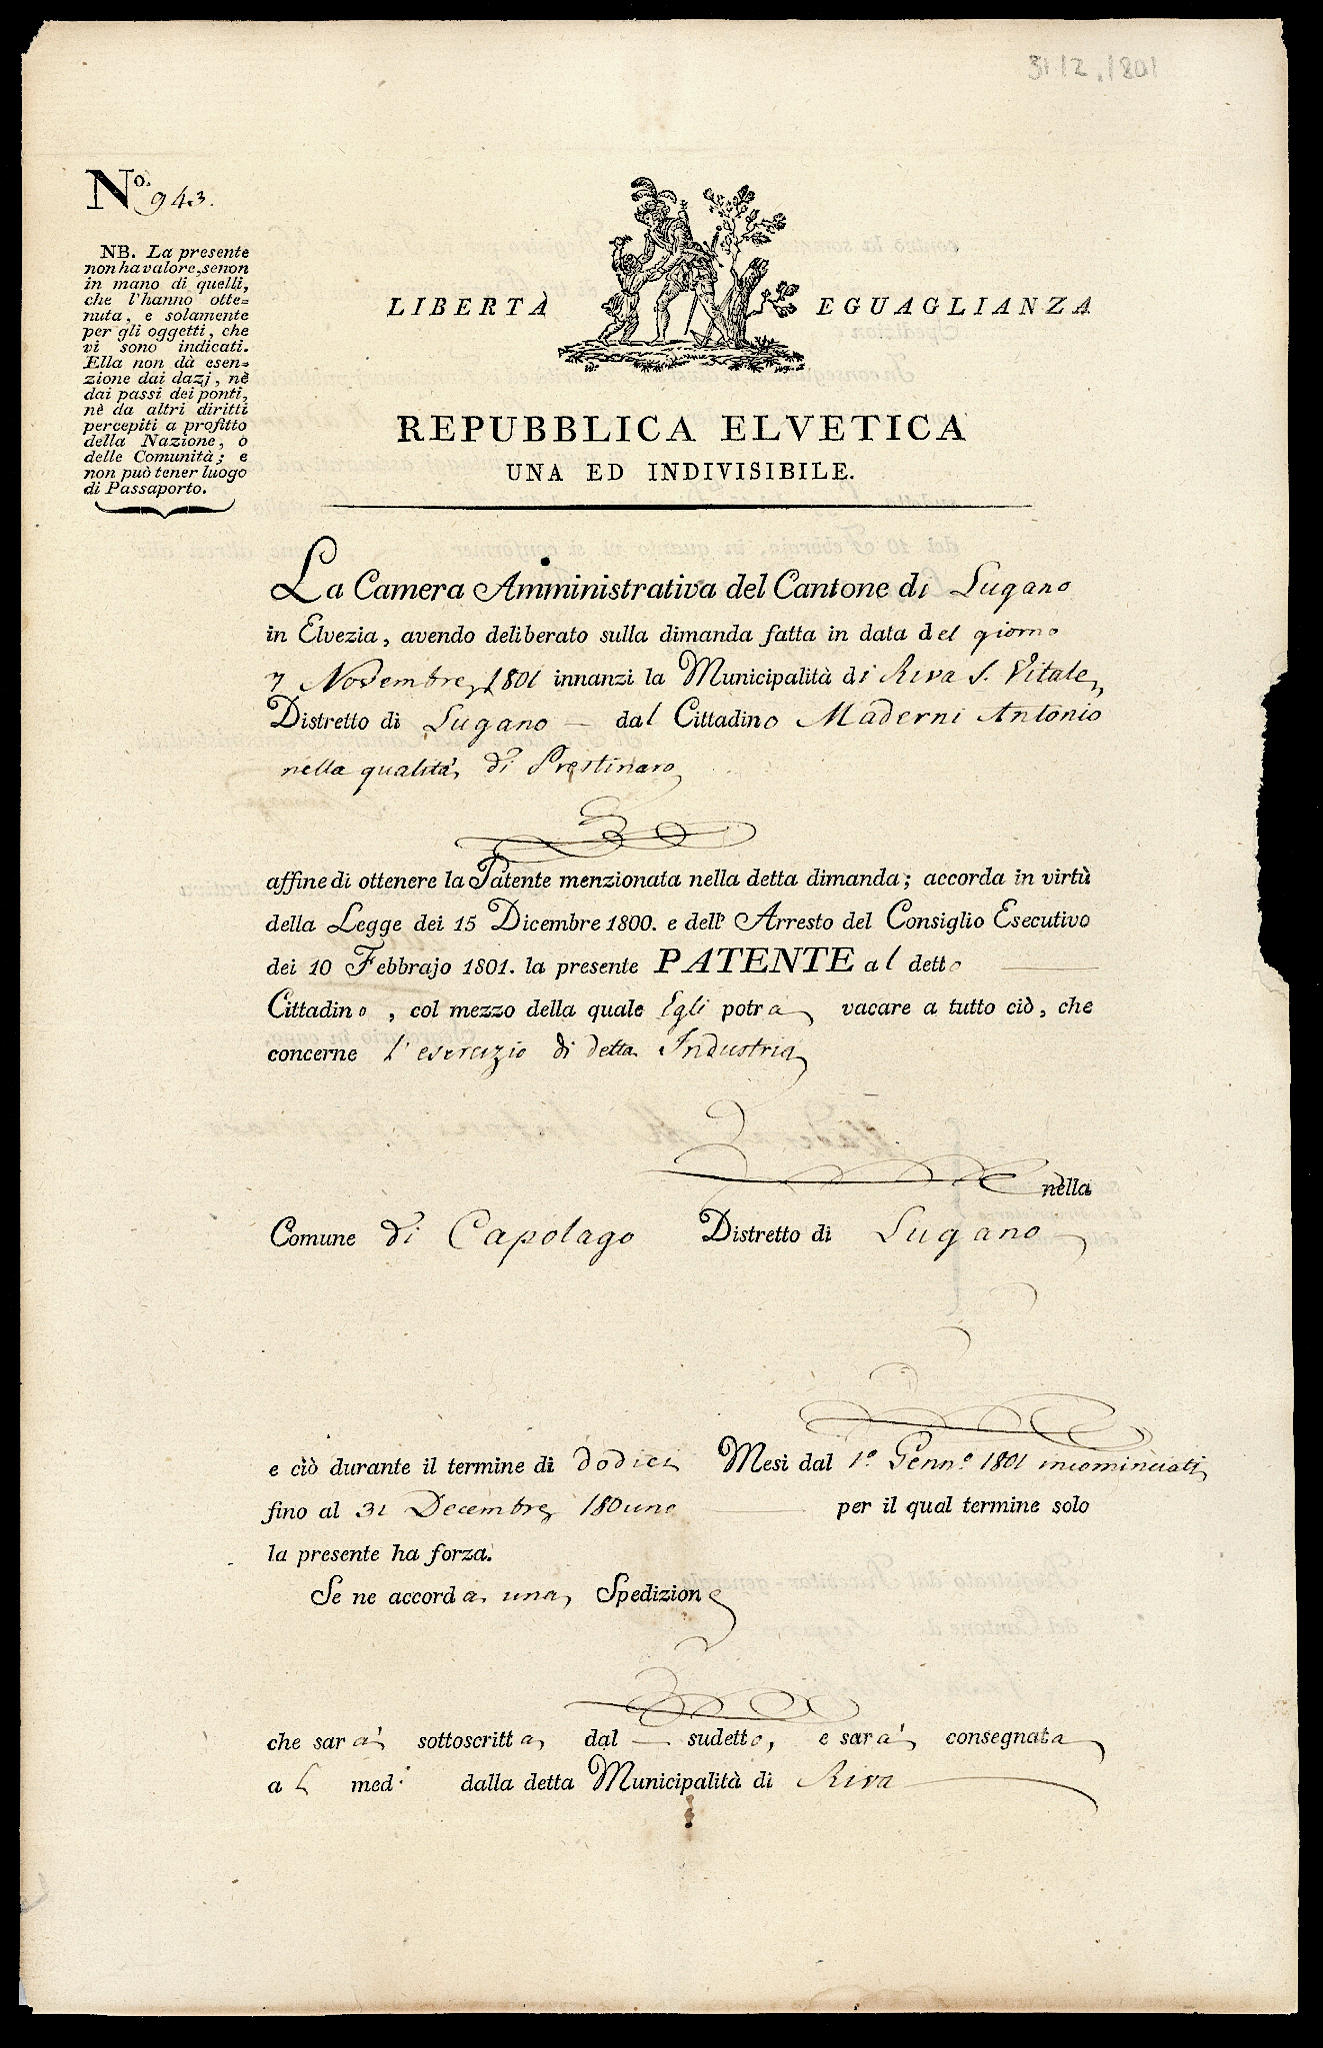 31 12. 1801
No. 943.
NB. La presente
non ha valore, se non
in mano di quelli,
che l'hanno otte=
nuta, e solamente
per gli oggetti, che
vi sono indicati.
Ella non dà esen=
zione dai dazj, nè
dai passi dei ponti,
nè da altri diritti
percepiti a profitto
della Nazione, o
delle Comunità; e
non può tener luogo
di Passaporto.
LIBERTÀ EGUAGLIANZA
REPUBBLICA ELVETICA
UNA ED INDIVISIBILE.
La Camera Amministrativa del Cantone di Lugano
in Elvezia, avendo deliberato sulla dimanda fatta in data del giorno
7 Novembre 1801 innanzi la Municipalità di Riva S. Vitale
Distretto di Lugano — dal Cittadino Maderni Antonio
nella qualità di Prestinaro
affine di ottenere la Patente menzionata nella detta dimanda; accorda in virtù
della Legge dei 15 Dicembre 1800. e dell' Arresto del Consiglio Esecutivo
dei 10 Febbrajo 1801. la presente PATENTE al detto
Cittadino, col mezzo della quale Egli potrà vacare a tutto ciò, che
concerne l'esercizio di detta Industria
nella
Comune di Capolago Distretto di Lugano
e ciò durante il termine di dodici Mesi dal 1.o Genn.o 1801 incominciati
fino al 31 Decembre 180uno per il qual termine solo
la presente ha forza.
Se ne accorda una Spedizione
che sarà sottoscritta dal — sudetto, e sarà consegnata
al med.o dalla detta Municipalità di Riva